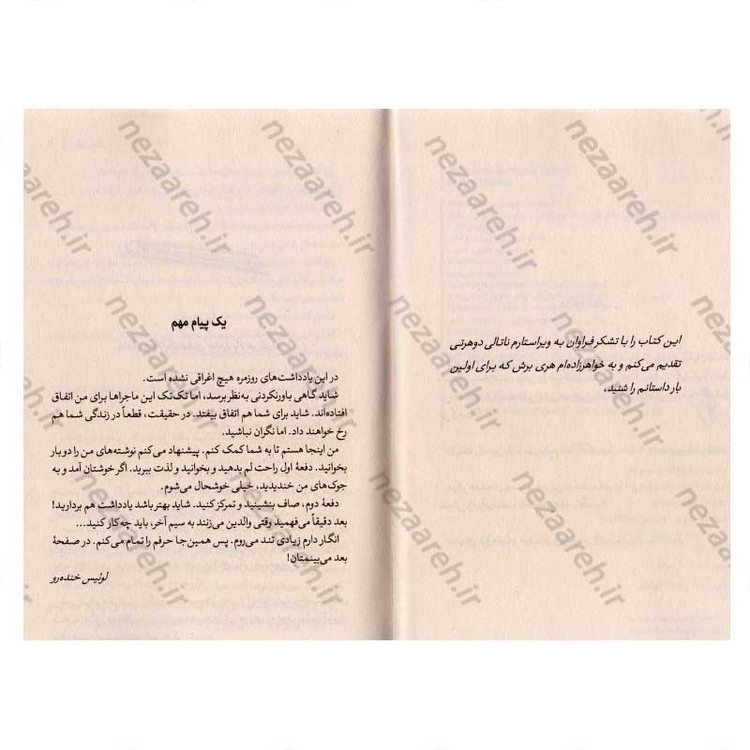 این کتاب را با تشکر فراوان به ویراستارم ناتالی دوهرتی
تقدیم می‌کنم و به خواهرزاده‌ام هری برش که برای اولین
بار داستانم را شنید.
یک پیام مهم
در این یادداشت‌های روزمره هیچ اغراقی نشده است.
شاید گاهی باورنکردنی به‌نظر برسد، اما تک‌تک این ماجراها برای من اتفاق
افتاده‌اند. شاید برای شما هم اتفاق بیفتد. در حقیقت، قطعاً در زندگی شما هم
رخ خواهند داد. اما نگران نباشید.
من اینجا هستم تا به شما کمک کنم. پیشنهاد می‌کنم نوشته‌های من را دو بار
بخوانید. دفعهٔ اول راحت لم بدهید و بخوانید و لذت ببرید. اگر خوشتان آمد و به
جوک‌های من خندیدید، خیلی خوشحال می‌شوم.
دفعهٔ دوم، صاف بنشینید و تمرکز کنید. شاید بهتر باشد یادداشت هم بردارید!
بعد دقیقاً می‌فهمید وقتی والدین می‌زنند به سیم آخر، باید چه‌کار کنید...
انگار دارم زیادی تند می‌روم. پس همین‌جا حرفم را تمام می‌کنم. در صفحهٔ
بعد می‌بینمتان!
لوئیس خنده‌رو
nezaareh.ir
nezaareh.ir
nezaareh.ir
nezaareh.ir
nezaareh.ir
nezaareh.ir
nezaareh.ir
nezaareh.ir
nezaareh.ir
nezaareh.ir
nezaareh.ir
nezaareh.ir